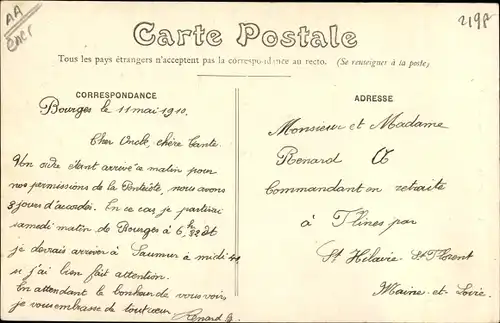 AA
2198
Carte Postale
Tous les pays étrangers n'acceptent pas la correspondance au recto. (Se renseigner à la poste)
CORRESPONDANCE
Bourges le 11 mai 1910.
Cher Oncle, chère Tante.
Un ordre étant arrivé ce matin pour
nos permissions de la Pentecôte, nous avons
3 jours d'accordés. En ce cas je partirai
samedi matin de Bourges à 6h 22 et
je devrais arriver à Saumur à midi 41
si j'ai bien fait attention.
En attendant le bonheur de vous voir
je vous embrasse de tout cœur Renard G.
ADRESSE
Monsieur et Madame
Renard
Commandant en retraite
à Flines par
St Hilaire St Florent
Maine-et-Loire.